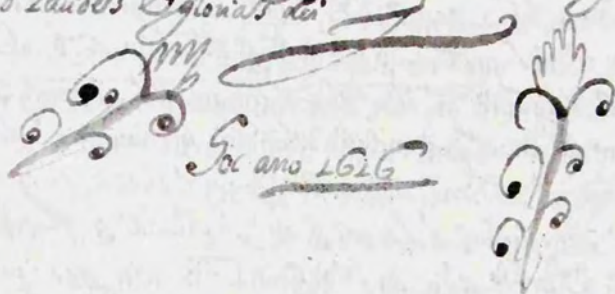 Laudem & gloriam dei
Hoc ano 1616